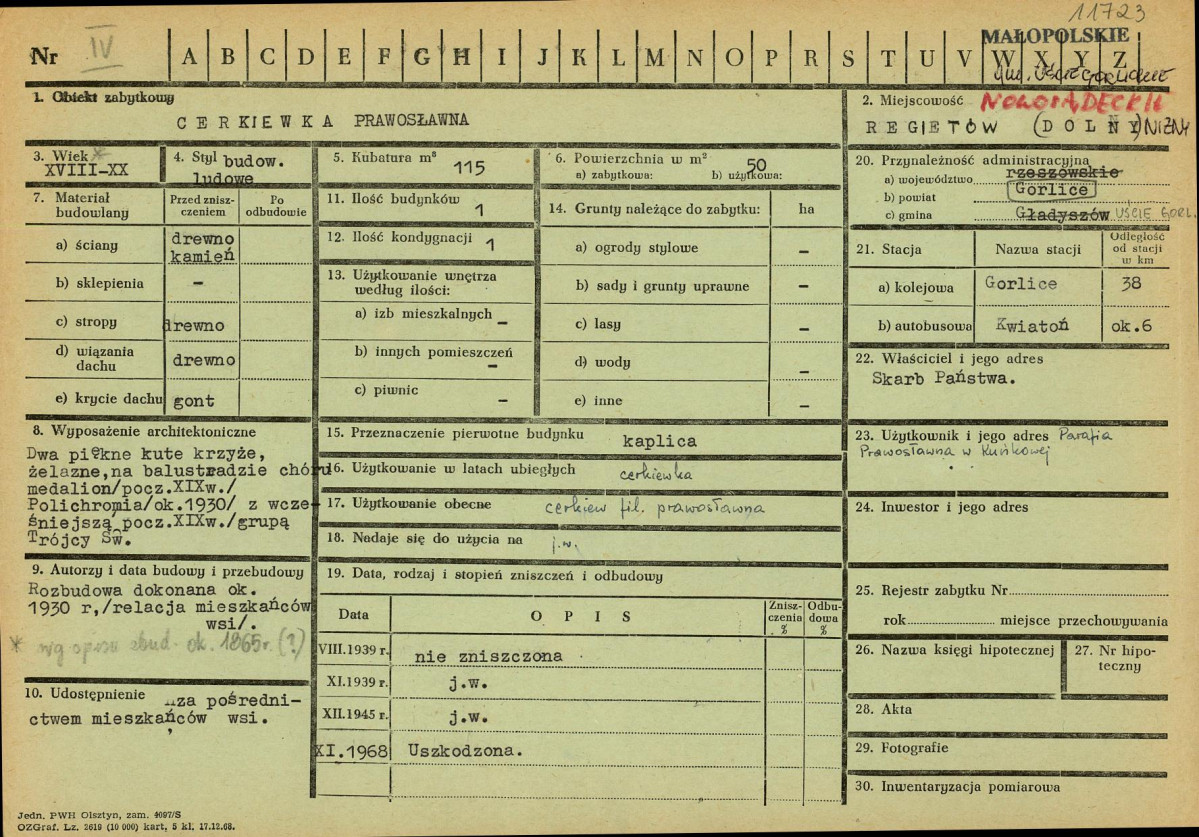 11723
Nr IV A B C D E F G H I J K L M N O P R S T U V W X Y Z
MAŁOPOLSKIE
gm. Uście Gorlickie
1. Obiekt zabytkowy
CERKIEWKA PRAWOSŁAWNA
2. Miejscowość NOWOSĄDECKIE
REGIETÓW (DOLNY) NIŻNY
3. Wiek *
XVIII-XX
4. Styl budow.
ludowe
5. Kubatura m³
115
6. Powierzchnia w m²
50
a) zabytkowa: b) użytkowa:
7. Materiał budowlany
Przed zniszczeniem
Po odbudowie
a) ściany drewno
kamień
b) sklepienia -
c) stropy drewno
d) wiązania dachu drewno
e) krycie dachu gont
8. Wyposażenie architektoniczne
Dwa piękne kute krzyże,
żelazne,na balustradzie chóru
medalion/pocz.XIXw./
Polichromia/ok.1930/ z wcze-
śniejszą pocz.XIXw./grupą
Trójcy Św.
9. Autorzy i data budowy i przebudowy
Rozbudowa dokonana ok.
1930 r,/relacja mieszkańców
wsi/.
* wg spisu zbud. ok. 1865r. (?)
10. Udostępnienie za pośredni-
ctwem mieszkańców wsi.
11. Ilość budynków
1
12. Ilość kondygnacji 1
13. Użytkowanie wnętrza
według ilości:
a) izb mieszkalnych -
b) innych pomieszczeń -
c) piwnic -
14. Grunty należące do zabytku: ha
a) ogrody stylowe -
b) sady i grunty uprawne -
c) lasy -
d) wody -
e) inne -
15. Przeznaczenie pierwotne budynku kaplica
16. Użytkowanie w latach ubiegłych cerkiewka
17. Użytkowanie obecne cerkiew fil. prawosławna
18. Nadaje się do użycia na j.w.
19. Data, rodzaj i stopień zniszczeń i odbudowy
Data
OPIS
Zniszczenia %
Odbudowa %
VIII.1939 r. nie zniszczona
XI.1939 r. j.w.
XII.1945 r. j.w.
XI.1968 Uszkodzona.
20. Przynależność administracyjna
a) województwo rzeszowskie
b) powiat Gorlice
c) gmina Gładyszów UŚCIE GORL.
21. Stacja
Nazwa stacji
Odległość od stacji w km
a) kolejowa Gorlice 38
b) autobusowa Kwiatoń ok.6
22. Właściciel i jego adres
Skarb Państwa.
23. Użytkownik i jego adres Parafia
Prawosławna w Kuńkowej
24. Inwestor i jego adres
25. Rejestr zabytku Nr
rok miejsce przechowywania
26. Nazwa księgi hipotecznej
27. Nr hipo-
teczny
28. Akta
29. Fotografie
30. Inwentaryzacja pomiarowa
Jedn. PWH Olsztyn, zam. 4097/S
OZGraf. Lz. 2619 (10 000) kart, 5 kl. 17.12.68.